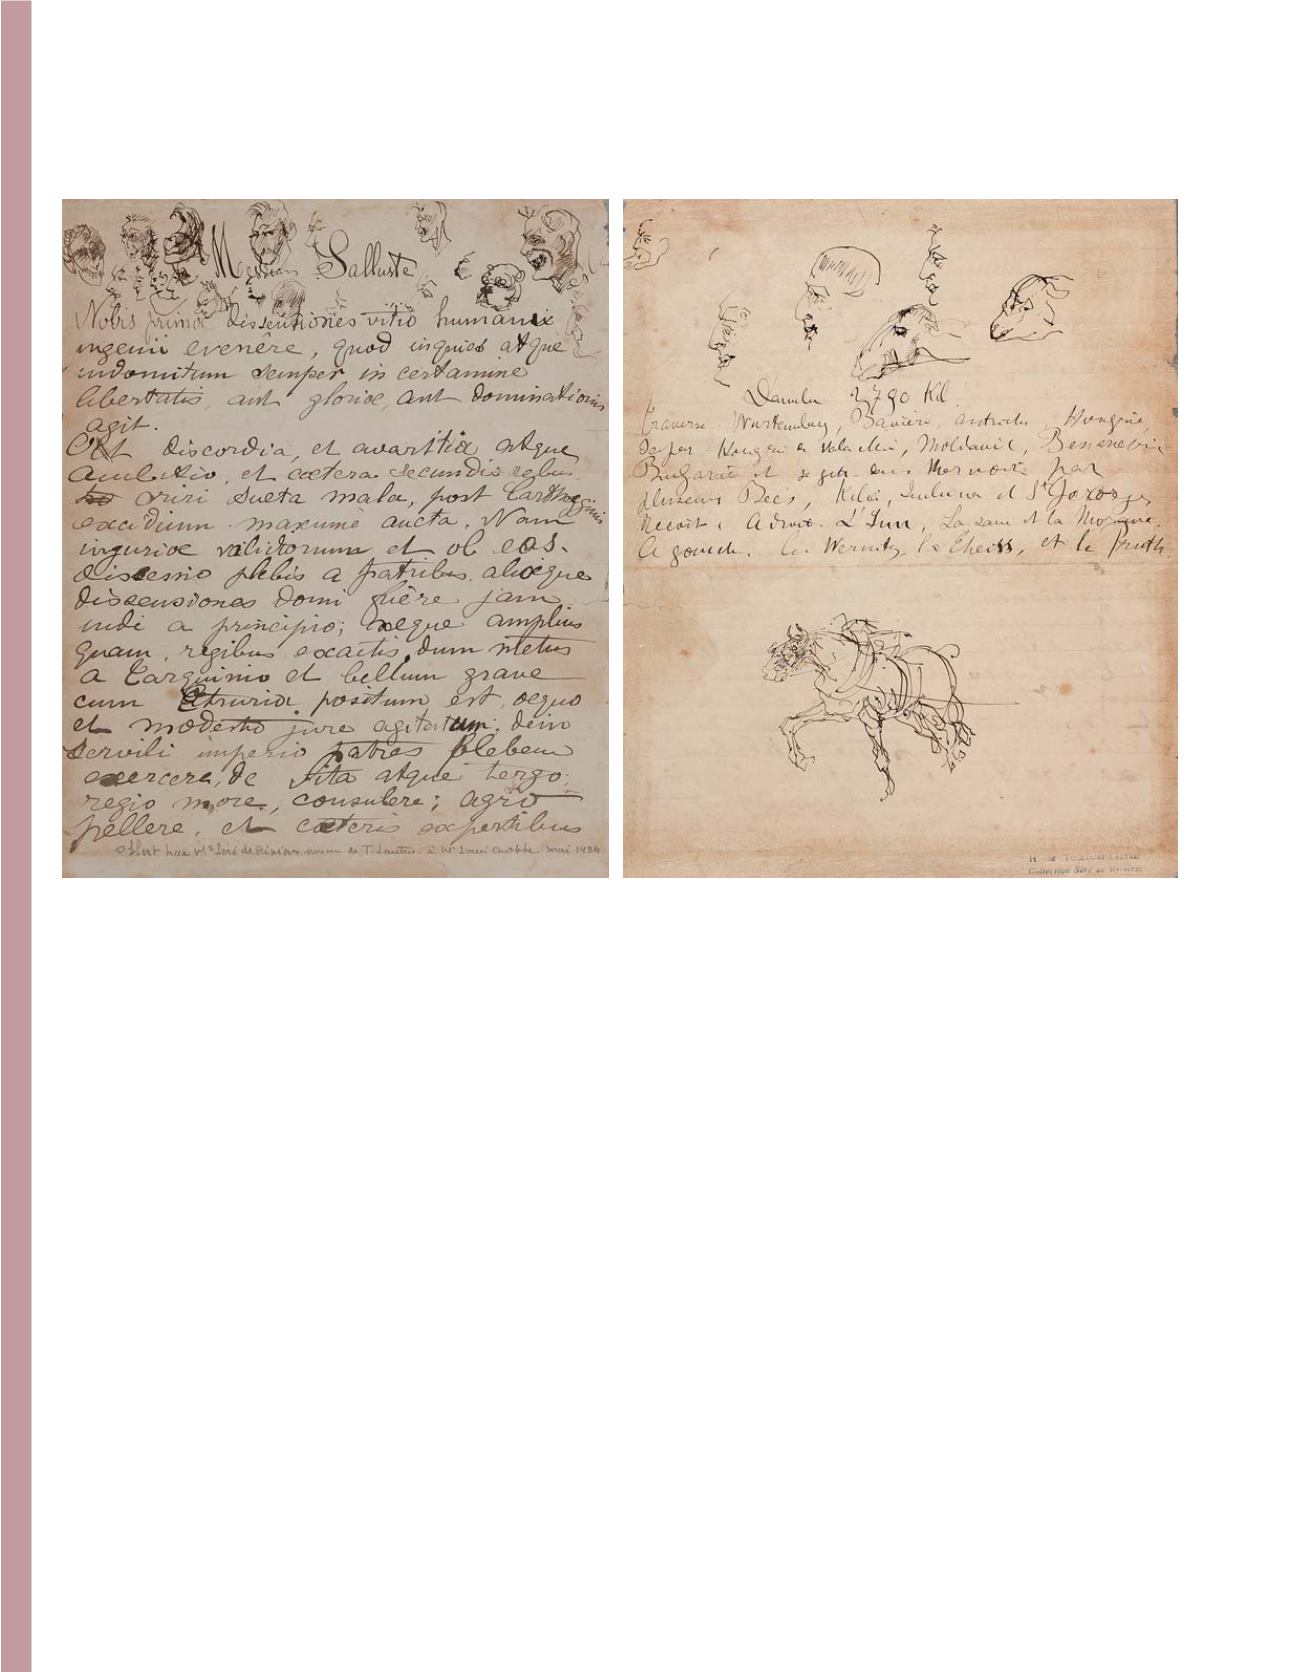 Messire Salluste
Nobis primæ dissentiones vitio humanix
ingenii evenêre, quod inquies atque
indomitum semper in certamine
libertatis, aut gloriæ, aut dominationis
agit.
Ast discordia, et avaritia atque
Ambitio, et cætera secundis rebus
oriri sueta mala, post Carthaginis
excidium maxumè aucta. Nam
injuriæ validiorum et ob eas.
discessio plebis a patribus, aliæque
dissensiones domi fuêre jam
indi a principio; neque amplius
quam, regibus exactis, dum metus
a Tarquinio et bellum grave
cum Etruria positum est, æquo
et modesto jure agitatum: dein
servili imperio patres plebem
exercere, de vita atque tergo,
regio more, consulere; agro
pellere, et cæteris expertibus
offert par Mr Séré de Rivières de T. Lautrec à Mr mai 1934
Danube 2790 Kil
traverse Wurtemberg, Bavière, autriche, Hongrie,
Hongrie Valachie, Moldavie, Bessarabie
Bulgarie et se jette mer noire par
plusieurs Becs, Kilia, Sulina et St Georges
Recoit à droite. L'Inn, La save et la Morave.
A gauche. la Wernitz, la Theiss, et le Pruth
H. DE TOULOUSE-LAUTREC
Collection Séré de Rivières